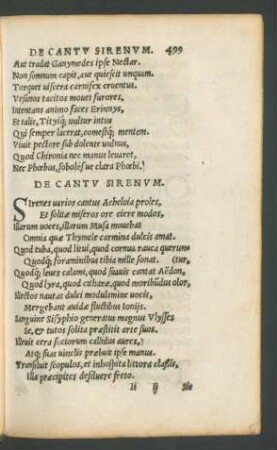 DE CANTV SIRENVM. 499
Aut tradat Ganymedes ipse Nectar.
Non somnum capit, aut quiescit unquam.
Torquet uiscera carnifex cruentus.
Vesanos tacitos mouet furores,
Intentans animo faces Erinnys,
Et talis, Tityiq́; uultur intus
Qui semper lacerat, comestq́; mentem.
Viuit pectore sub dolente uulnus,
Quod Chironia nec manus leuaret,
Nec Phœbus, sobolésue clara Phœbi.
DE CANTV SIRENVM.
Sirenes uarios cantus Acheloia proles,
Et solitæ miseros ore ciere modos,
Illarum uoces, illarum Musa mouebat
Omnia quæ Thymele carmina dulcis amat.
Quod tuba, quod litui, quod cornua rauca querun-
Quodq́; foraminibus tibia mille sonat. (tur,
Quodq́; leues calami, quod suauis cantat Aëdon,
Quod lyra, quod citharæ, quod moribũdus olor,
Illectos nautas dulci modulamine uocis,
Mergebant auidæ fluctibus Ionijs.
Sanguine Sisyphio generatus magnus Vlysses
Se, & tutos solita præstitit arte suos.
Illeuit cera sociorum callidus aures,
Atq; suas uinclis præbuit ipse manus.
Transiluit scopulos, et inhospita littora classis,
Illæ præcipites desiluere freto.
Ii ij Sic